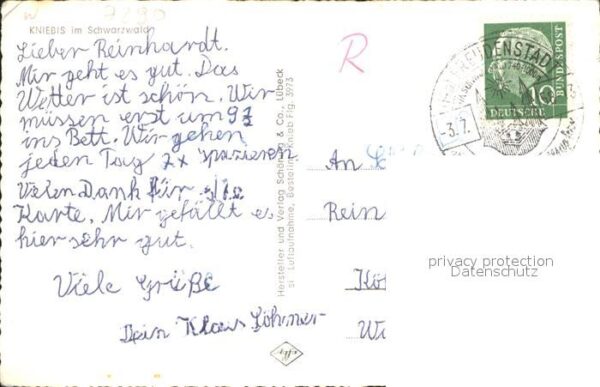 7290
KNIEBIS im Schwarzwald
Lieber Reinhardt.
Mir geht es gut. Das
Wetter ist schön. Wir
müssen erst um 9½
ins Bett. Wir gehen
jeden Tag 2x spazieren
Vielen Dank für die
Karte. Mir gefällt es
hier sehr gut.
Viele Grüße
Dein Klaus
Hersteller und Verlag Schöning & Co., Lübeck
Luftaufnahme, Bestellnr. Knieb Flg. 3973
R
FREUDENSTADT
-3.7.
10
DEUTSCHE
BUNDESPOST
An
Rein
Kö
privacy protection
Datenschutz